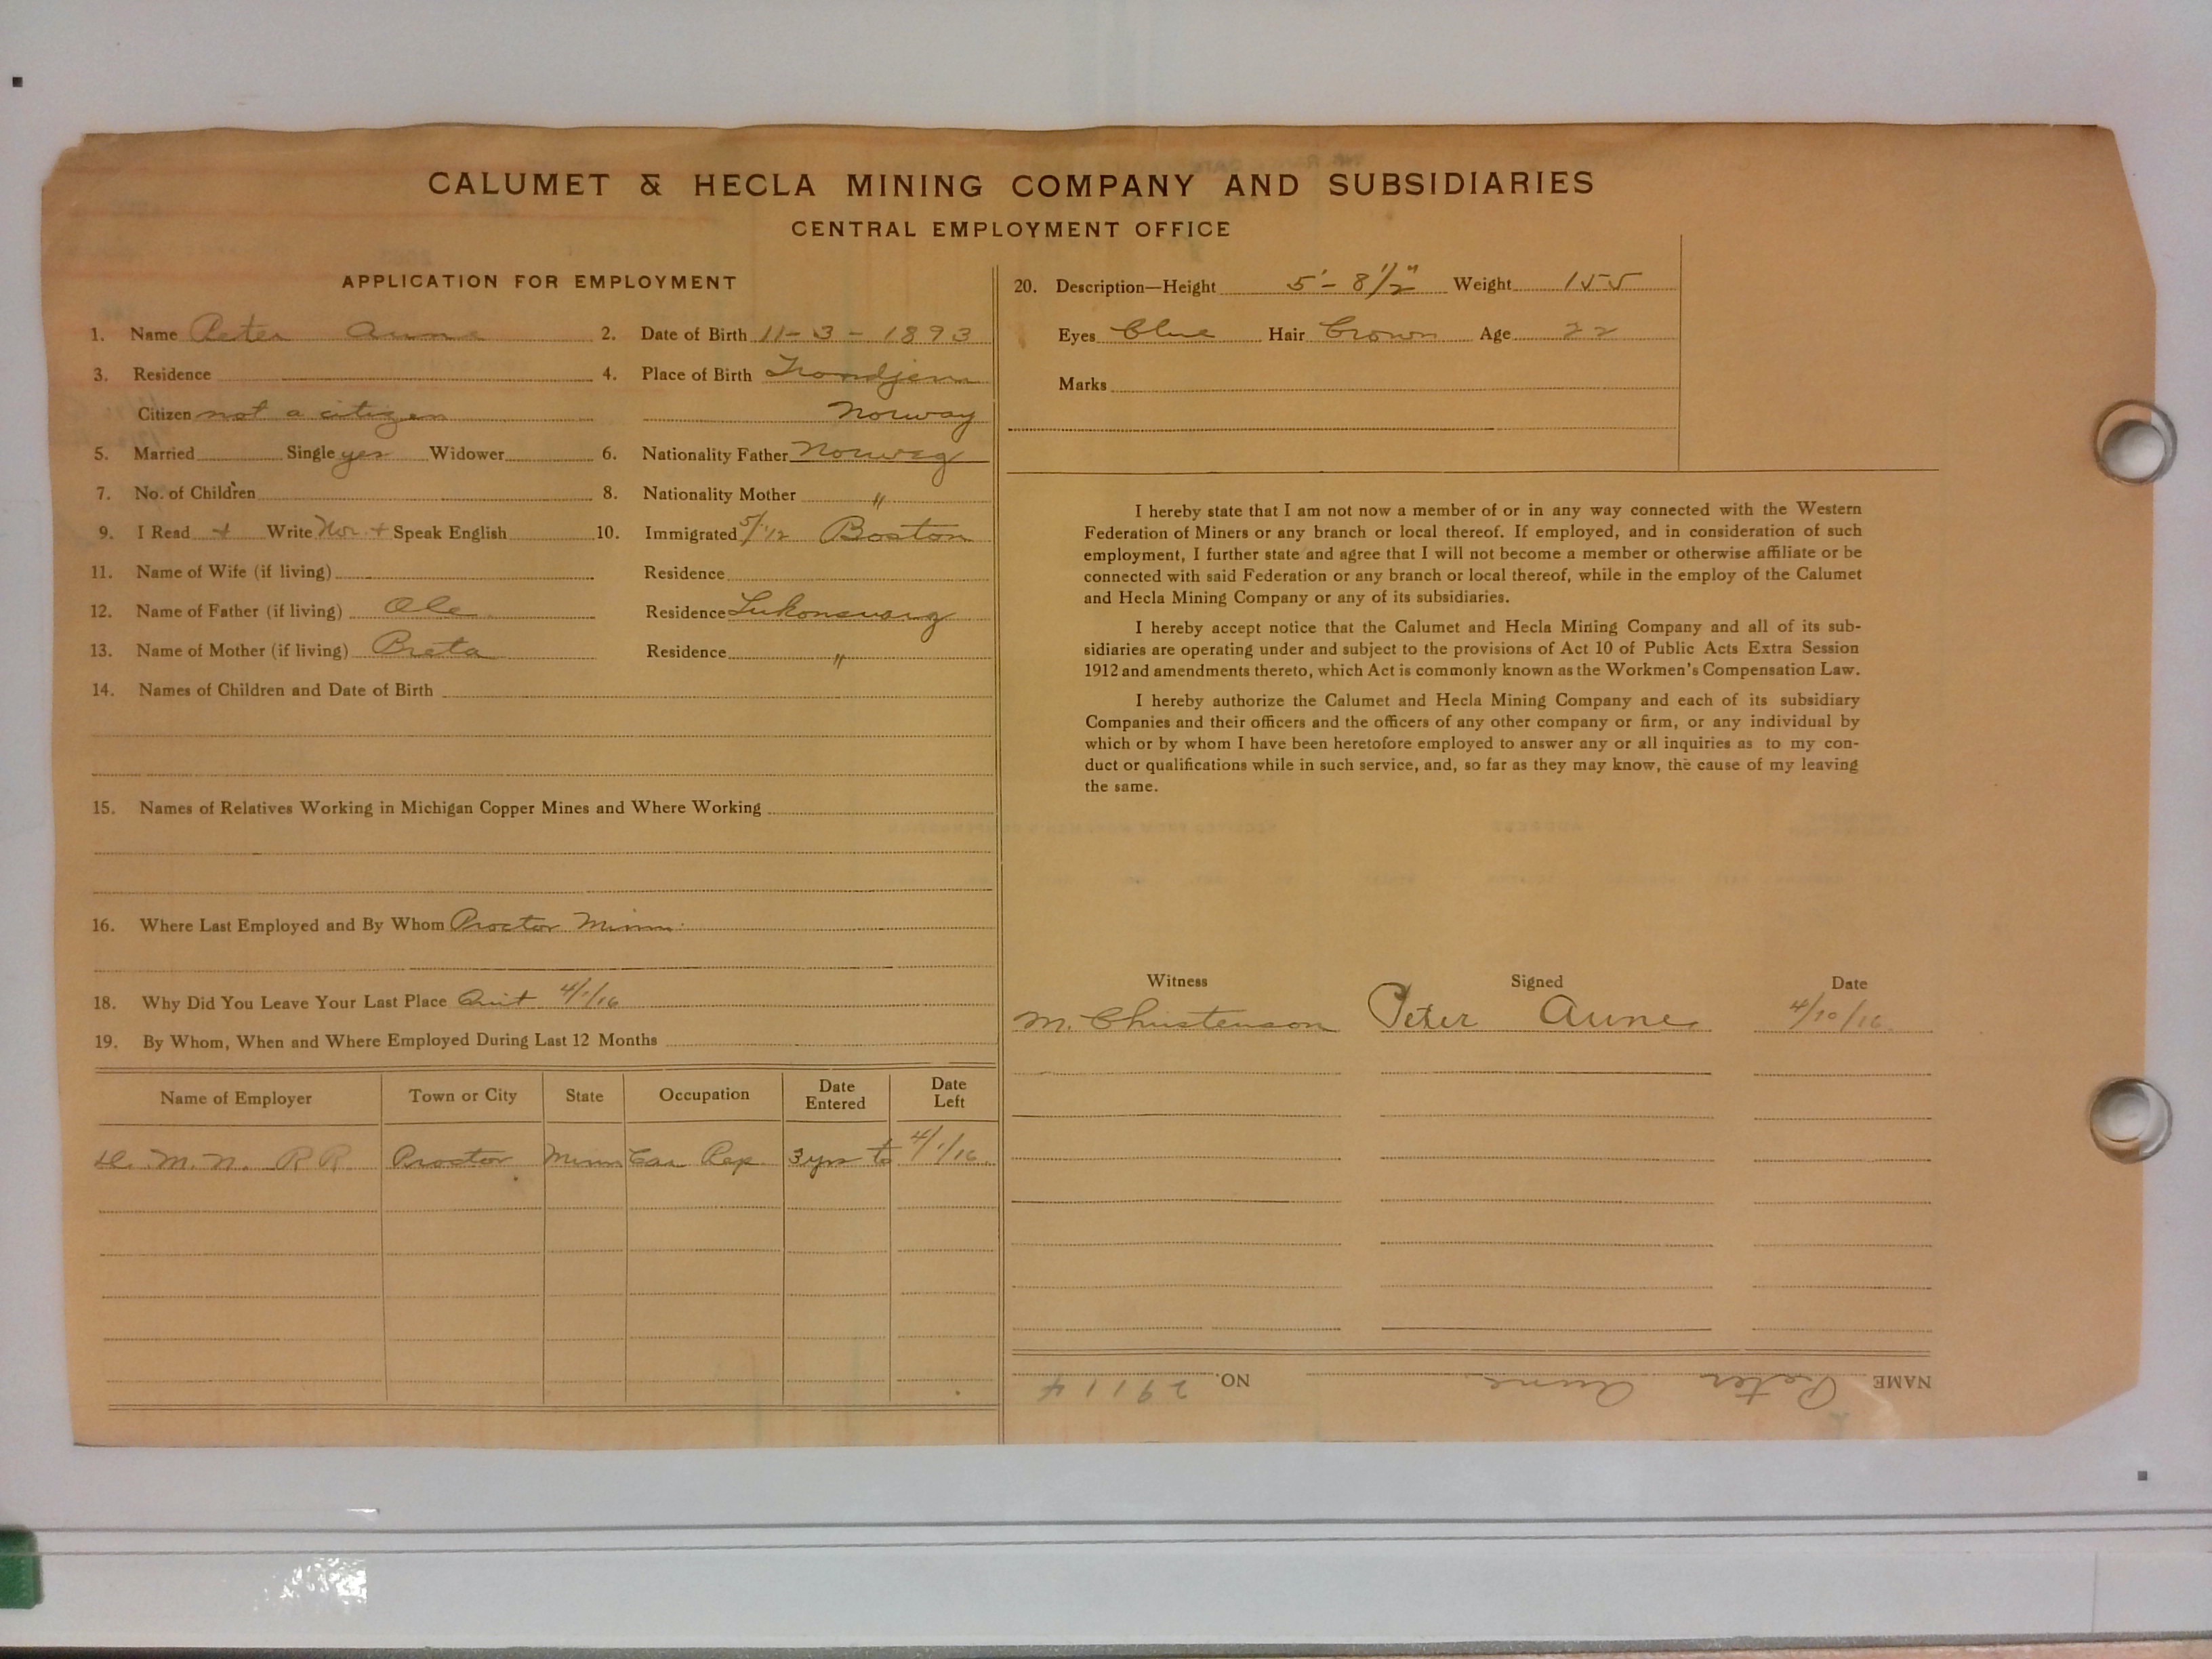 CALUMET & HECLA MINING COMPANY AND SUBSIDIARIES
CENTRAL EMPLOYMENT OFFICE
APPLICATION FOR EMPLOYMENT
1. Name Peter Aune 2. Date of Birth 11-3-1893
3. Residence 4. Place of Birth Trondjem
Citizen not a citizen Norway
5. Married Single yes Widower 6. Nationality Father Norweg
7. No. of Children 8. Nationality Mother "
9. I Read + Write Nor. + Speak English 10. Immigrated 5/12 Boston
11. Name of Wife (if living) Residence
12. Name of Father (if living) Ole Residence
13. Name of Mother (if living) Residence "
14. Names of Children and Date of Birth
15. Names of Relatives Working in Michigan Copper Mines and Where Working
16. Where Last Employed and By Whom Proctor Minn.
18. Why Did You Leave Your Last Place Quit 4/1/16
19. By Whom, When and Where Employed During Last 12 Months
Name of Employer Town or City State Occupation Date Entered Date Left
M. N. RR Proctor Minn Car Rep. 3 yrs to 4/1/16
20. Description—Height 5'-8 1/2" Weight 155
Eyes Blue Hair Brown Age 22
Marks
I hereby state that I am not now a member of or in any way connected with the Western
Federation of Miners or any branch or local thereof. If employed, and in consideration of such
employment, I further state and agree that I will not become a member or otherwise affiliate or be
connected with said Federation or any branch or local thereof, while in the employ of the Calumet
and Hecla Mining Company or any of its subsidiaries.
I hereby accept notice that the Calumet and Hecla Mining Company and all of its sub-
sidiaries are operating under and subject to the provisions of Act 10 of Public Acts Extra Session
1912 and amendments thereto, which Act is commonly known as the Workmen's Compensation Law.
I hereby authorize the Calumet and Hecla Mining Company and each of its subsidiary
Companies and their officers and the officers of any other company or firm, or any individual by
which or by whom I have been heretofore employed to answer any or all inquiries as to my con-
duct or qualifications while in such service, and, so far as they may know, the cause of my leaving
the same.
Witness Signed Date
M. Christenson Peter Aune 4/10/16
NAME Peter Aune NO. 29114